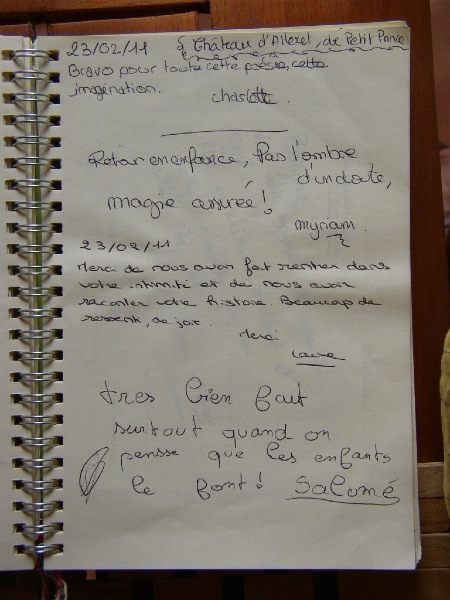 23/02/11 Château d'Alleret, de Petit Prince
Bravo pour toute cette poésie, cette
imagination.
Charlotte.
Retour en enfance, Pas l'ombre
d'un doute,
magie assurée!
myriam.
23/02/11
Merci de nous avoir fait rentrer dans
votre intimité et de nous avoir
raconter votre histoire. Beaucoup de
ressenti, de joie.
Merci
Laura
tres bien fait
surtout quand on
pensse que les enfants
le font! Salomé